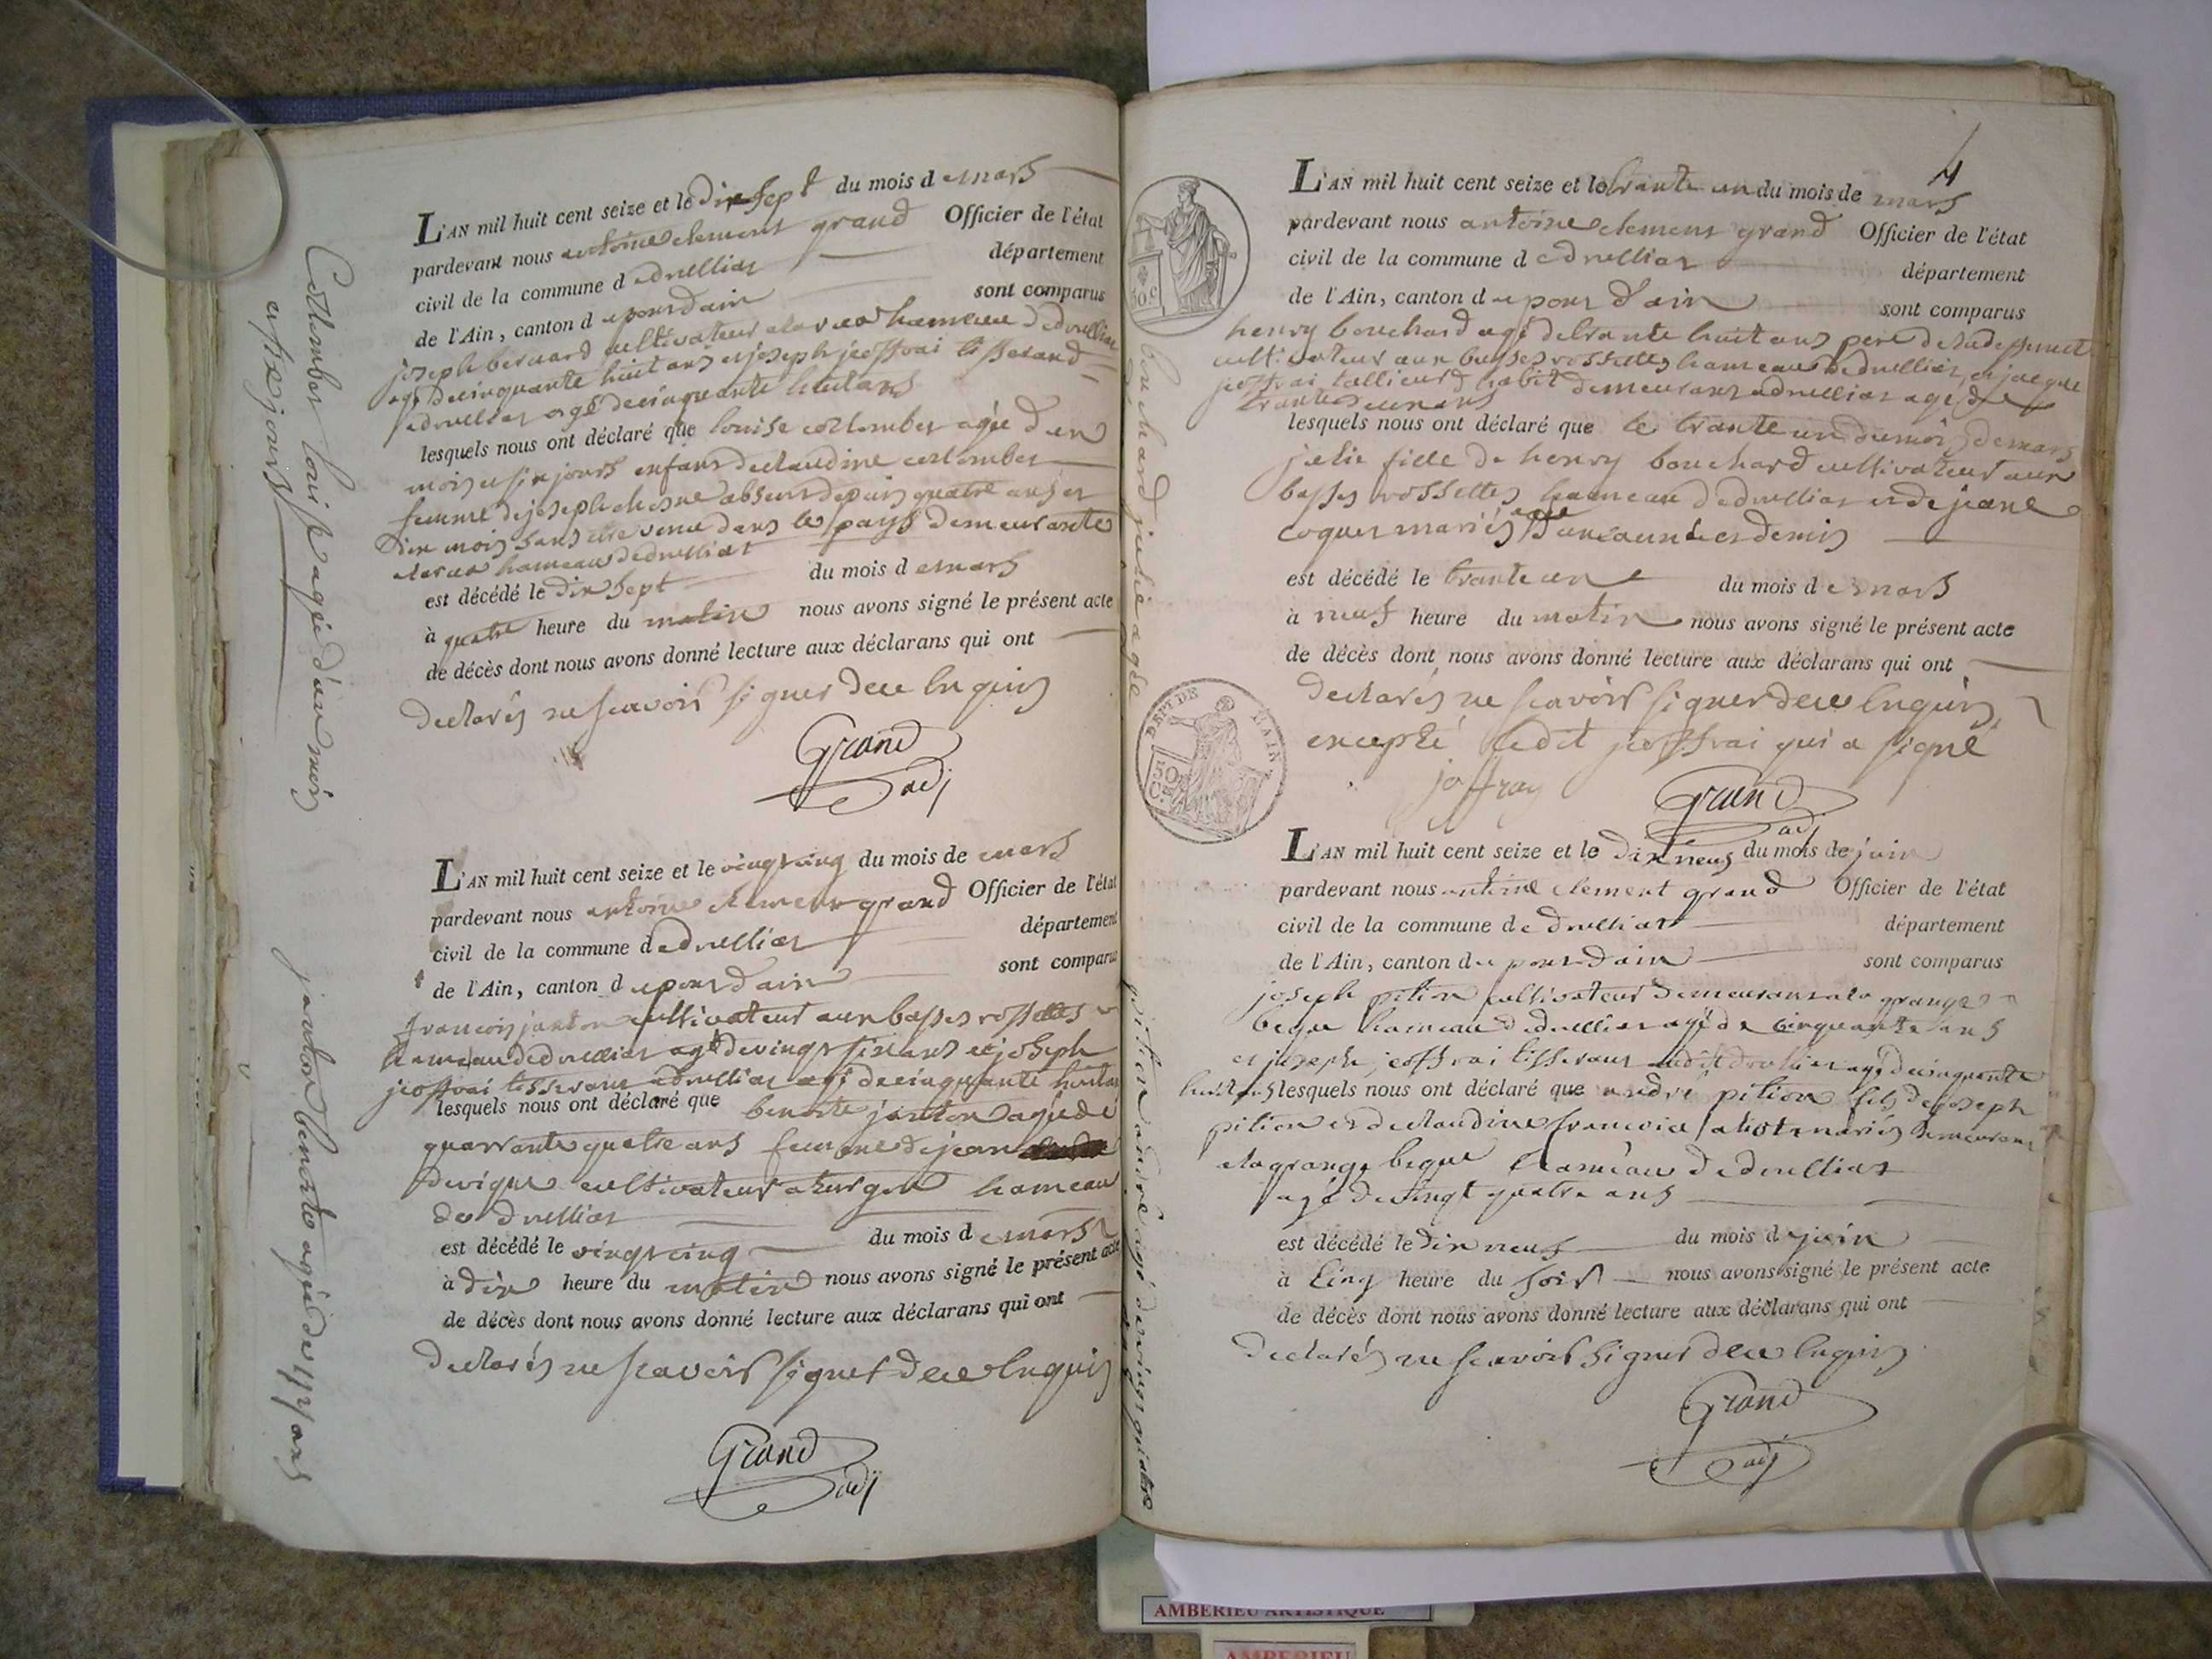 L'AN mil huit cent seize et le dix sept du mois d e mars
pardevant nous antoine clement grand Officier de l'état
civil de la commune d e druilliat département
de l'Ain, canton d e pont d'ain sont comparus
joseph bernard cultivateur hameau de druilliat
agé de cinquante huit ans et joseph jeoffrai tisserand
a druilliat agé de cinquante huit ans
lesquels nous ont déclaré que louise agée d'un
mois et six jours enfant de claudine
femme de joseph chesne absent depuis quatre ans et
dix mois sans etre venu dans le pays demeurante
hameau de druilliat
est décédé le dix sept du mois d e mars
à quatre heure du matin nous avons signé le présent acte
de décès dont nous avons donné lecture aux déclarans qui ont
declarés ne scavoir signer de ce enquis
Grand
adj
louise agée d'un mois
et six jours
L'AN mil huit cent seize et le vingt cinq du mois de mars
pardevant nous antoine clement grand Officier de l'état
civil de la commune d e druilliat département
de l'Ain, canton d e pont d'ain sont comparus
francois janton cultivateur aux basses rossettes
hameau de druilliat agé de vingt six ans et joseph
jeoffrai tisserant a druilliat agé de cinquante huit ans
lesquels nous ont déclaré que benoite janton agée de
quarrante quatre ans femme de jean
cultivateur a turgon hameau
de druilliat
est décédé le vingt cinq du mois d e mars
à dix heure du matin nous avons signé le présent acte
de décès dont nous avons donné lecture aux déclarans qui ont
declarés ne scavoir signer de ce enquis
Grand
adj
janton benoite agée de 44 ans
4
L'AN mil huit cent seize et le trante un du mois de mars
pardevant nous antoine clement grand Officier de l'état
civil de la commune d e druilliat département
de l'Ain, canton d e pont d'ain sont comparus
henry bouchard agé de trante huit ans pere de
cultivateur aux basses rossettes hameau de druilliat, et jacque
jeoffrai tallieur d'habit demeurant a druilliat agé de
trante ans
lesquels nous ont déclaré que le trante un du mois de mars
julie fille de henry bouchard cultivateur aux
basses rossettes hameau de druilliat et de jeane
coquet mariés agée d'un an et demis
est décédé le trante un du mois d e mars
à neuf heure du matin nous avons signé le présent acte
de décès dont nous avons donné lecture aux déclarans qui ont
declarés ne scavoir signer de ce enquis,
excepté ledit jeoffrai qui a signé
joffray
Grand
adj
bouchard julie agée
DEPT. DE L'AIN
50 C.
L'AN mil huit cent seize et le dix neuf du mois de juin
pardevant nous antoine clement grand Officier de l'état
civil de la commune d e druilliat département
de l'Ain, canton d e pont d'ain sont comparus
joseph pition cultivateur demeurant a la grange
begue hameau de druilliat agé de cinquante ans
et joseph jeoffrai tisserant audit druilliat agé de cinquante
huit ans lesquels nous ont déclaré que andré pition fils de joseph
pition et de claudine francoise mariés demeurant
a la grange begue hameau de druilliat
agé de vingt quatre ans
est décédé le dix neuf du mois d e juin
à cinq heure du soir nous avons signé le présent acte
de décès dont nous avons donné lecture aux déclarans qui ont
declarés ne scavoir signer de ce enquis
Grand
adj
pition andré agé de vingt quatre
ans
AMBERIEU ARTISTIQUE
AMBERIEU